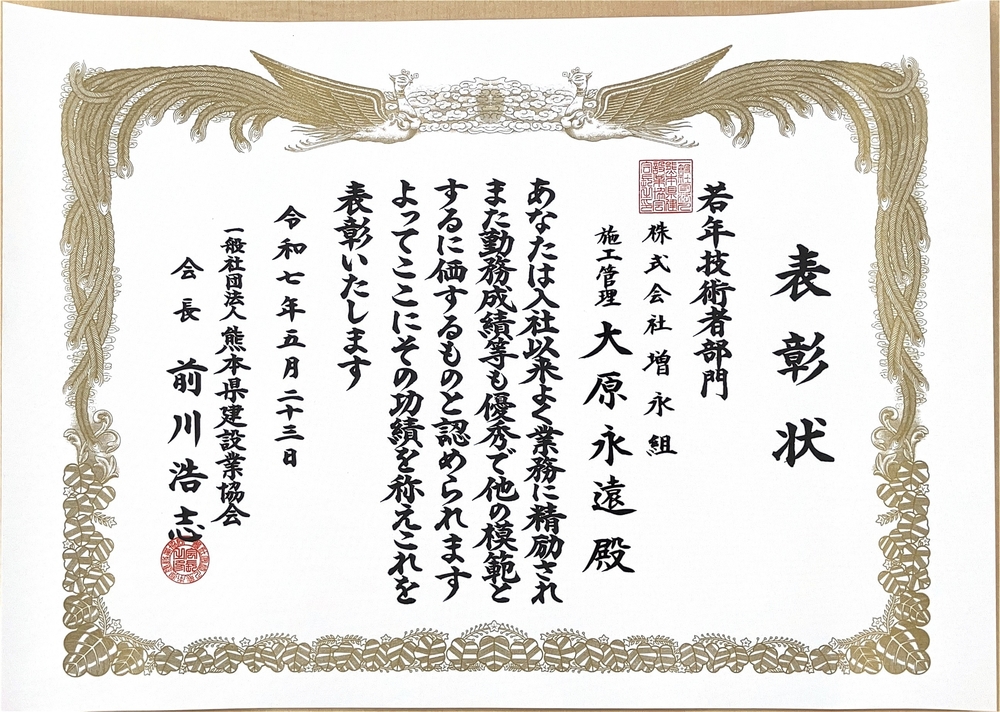 表彰状
若年技術者部門
株式会社増永組
施工管理 大原永遠殿
あなたは入社以来よく業務に精励され
また勤務成績等も優秀で他の模範と
するに価するものと認められます
よってここにその功績を称えこれを
表彰いたします
令和七年五月二十三日
一般社団法人熊本県建設業協会
会長 前川浩志